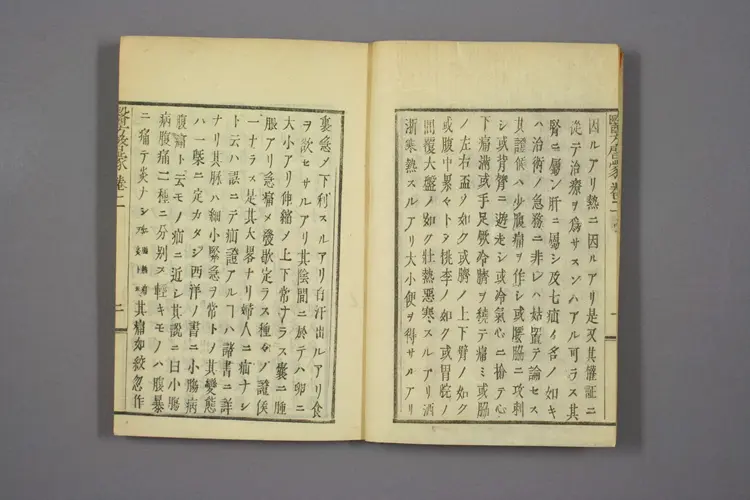 因ルアリ熱ニ因ルアリ是又其證ニ
從テ治療ヲ爲サスンハアル可ラス其
腎ニ屬シ肝ニ屬シ及七疝ノ名ノ如キ
ハ治術ノ急務ニ非レハ姑置テ論セス
其證候ハ少腹痛ヲ作シ或腰脇ニ攻刺
シ或背膂ニ遊走シ或冷氣心ニ搶テ心
下痛
或手足厥冷臍ヲ繞テ痛ミ或脇
ノ左右盃ノ如ク或臍ノ上下臂ノ如ク
或腹中累々トメ桃李ノ如ク或胃脘ノ
間覆大盤ノ如ク壯熱惡寒スルアリ洒
淅寒熱スルアリ大小便ヲ得サルアリ
裏急メ下利スルアリ自汗出ルアリ食
ヲ欲セサルアリ其陰間ニ於テハ卯ニ
大小アリ伸縮メ上下常ナラス囊ニ腫
脹アリ急痛メ發歇定ラス種々ノ證候
一ナラス是其大畧ナリ婦人ニ疝ナシ
ト云ハ誤ニテ疝證アルヿハ諸書ニ詳
ナリ其脉ハ細小緊急ヲ常トメ其變態
ハ一槩ニ定カタシ西洋ノ書ニ小腸病
腹痛ト云モノ疝ニ近シ其説ニ曰小腸
病腹痛二種ニ分別ス輕キモノハ腹暴
ニ痛テ炎ナシ
其痛如絞忽作
醫方啓蒙 卷二
二
醫方啓蒙 卷二
一